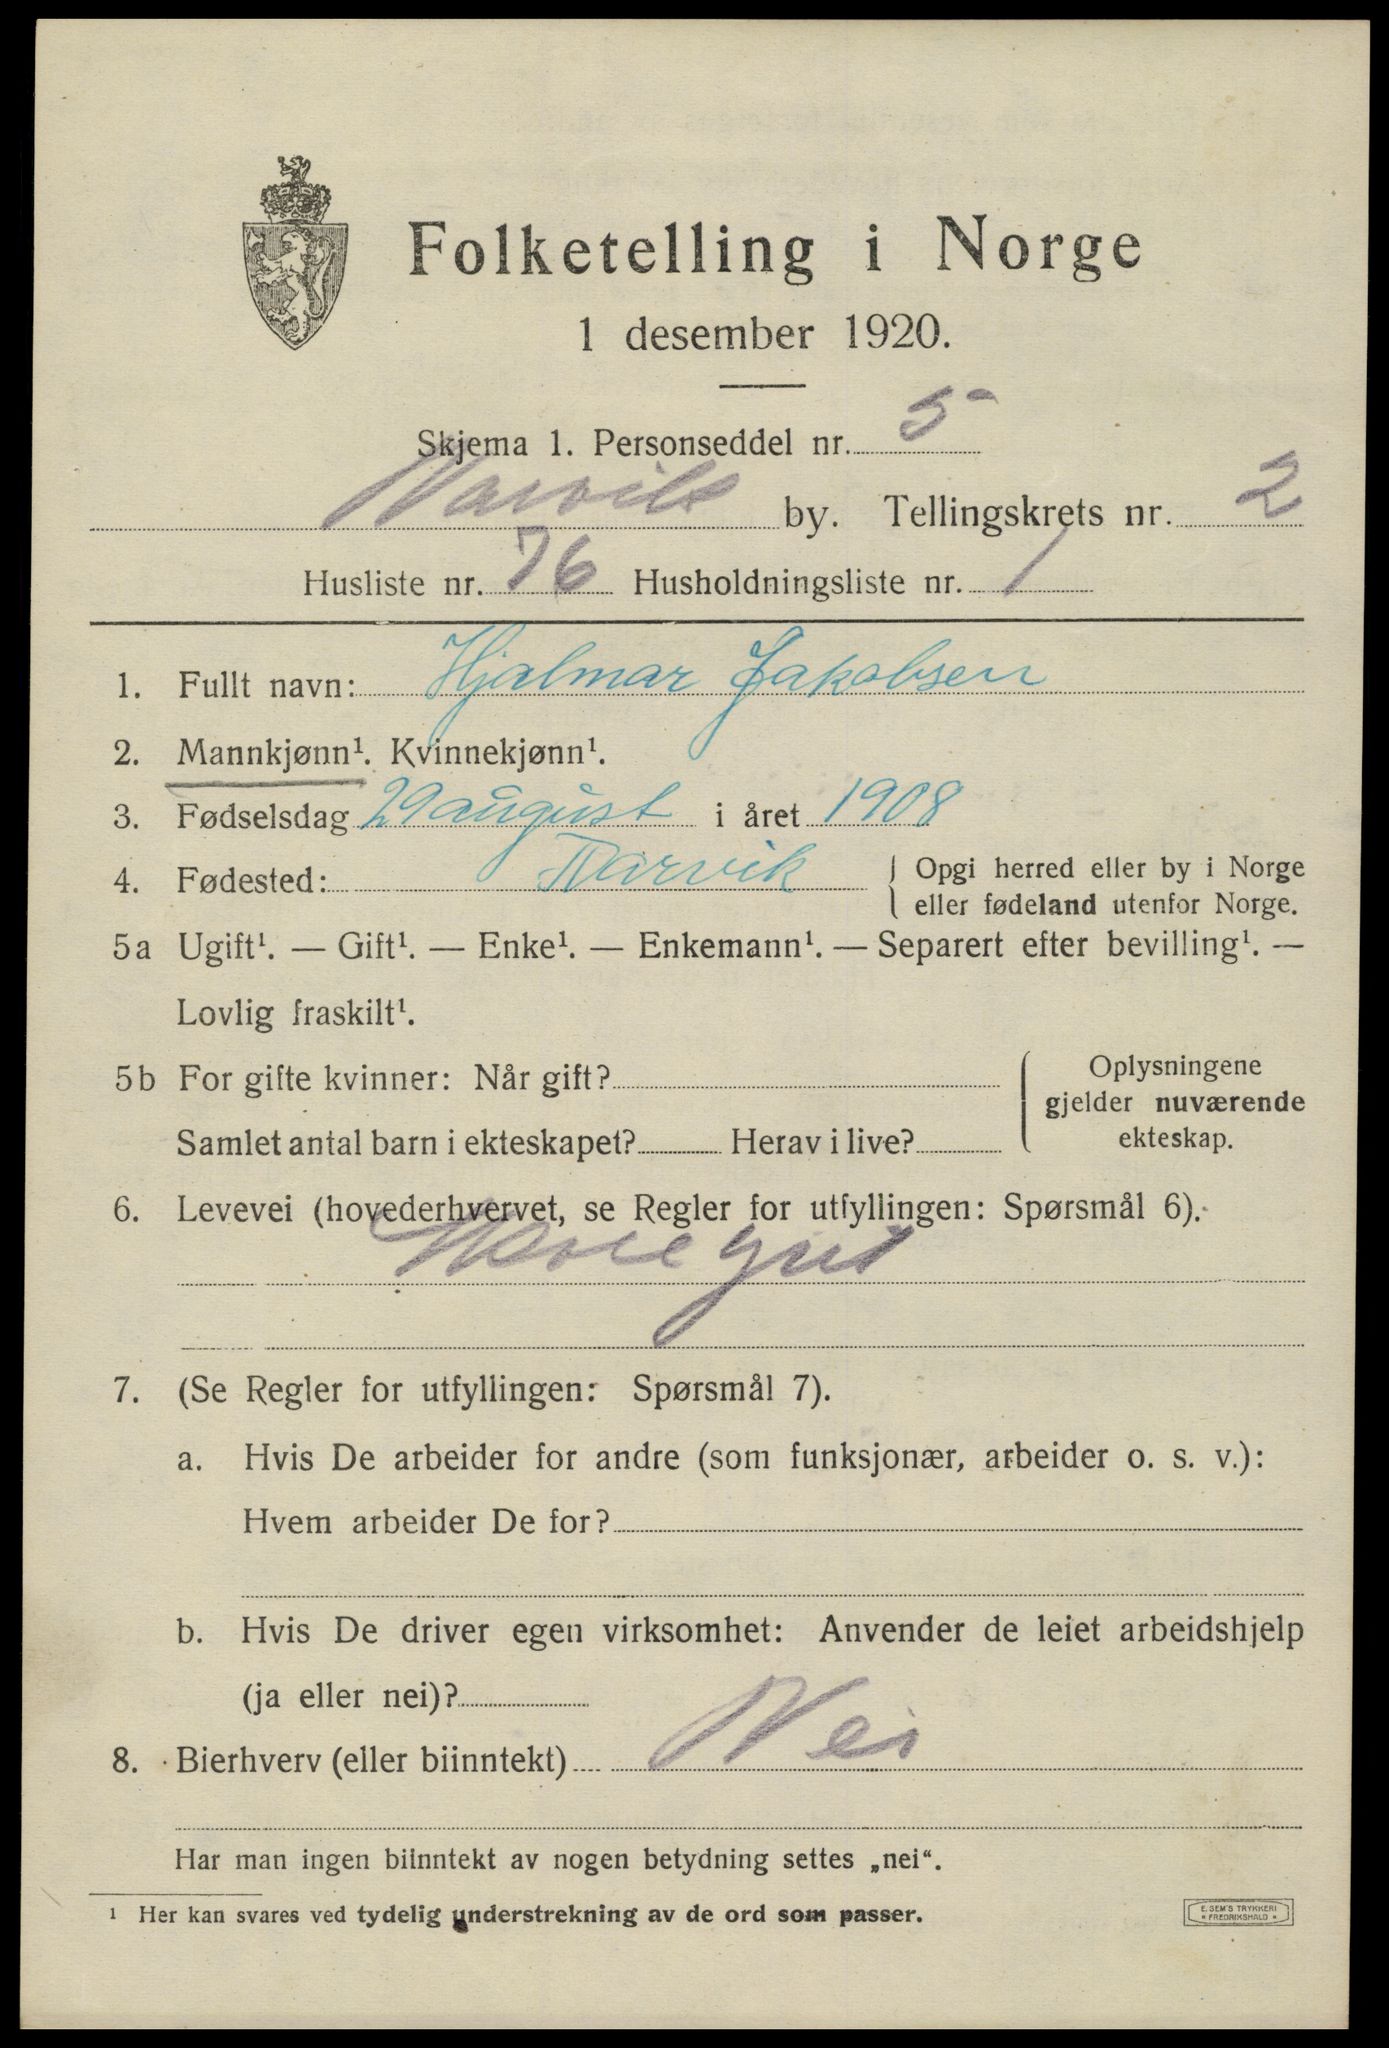 Folketelling i Norge
1 desember 1920.
Skjema 1. Personseddel nr. 5
Narvik by. Tellingskrets nr. 2
Husliste nr. 76 Husholdningsliste nr. 1
1. Fullt navn: Hjalmar Jakobsen
2. Mannkjønn¹. Kvinnekjønn¹.
3. Fødselsdag 29 august i året 1908
4. Fødested: Narvik { Opgi herred eller by i Norge
eller fødeland utenfor Norge.
5a Ugift¹. — Gift¹. — Enke¹. — Enkemann¹. — Separert efter bevilling¹. —
Lovlig fraskilt¹.
5b For gifte kvinner: Når gift?
Samlet antal barn i ekteskapet? Herav i live?
Oplysningene
gjelder nuværende
ekteskap.
6. Levevei (hovederhvervet, se Regler for utfyllingen: Spørsmål 6).
7. (Se Regler for utfyllingen: Spørsmål 7).
a. Hvis De arbeider for andre (som funksjonær, arbeider o. s. v.):
Hvem arbeider De for?
b. Hvis De driver egen virksomhet: Anvender de leiet arbeidshjelp
(ja eller nei)?
8. Bierhverv (eller biinntekt) Nei
Har man ingen biinntekt av nogen betydning settes „nei“.
¹ Her kan svares ved tydelig understrekning av de ord som passer.
E. SEM'S TRYKKERI
* FREDRIKSHALD *